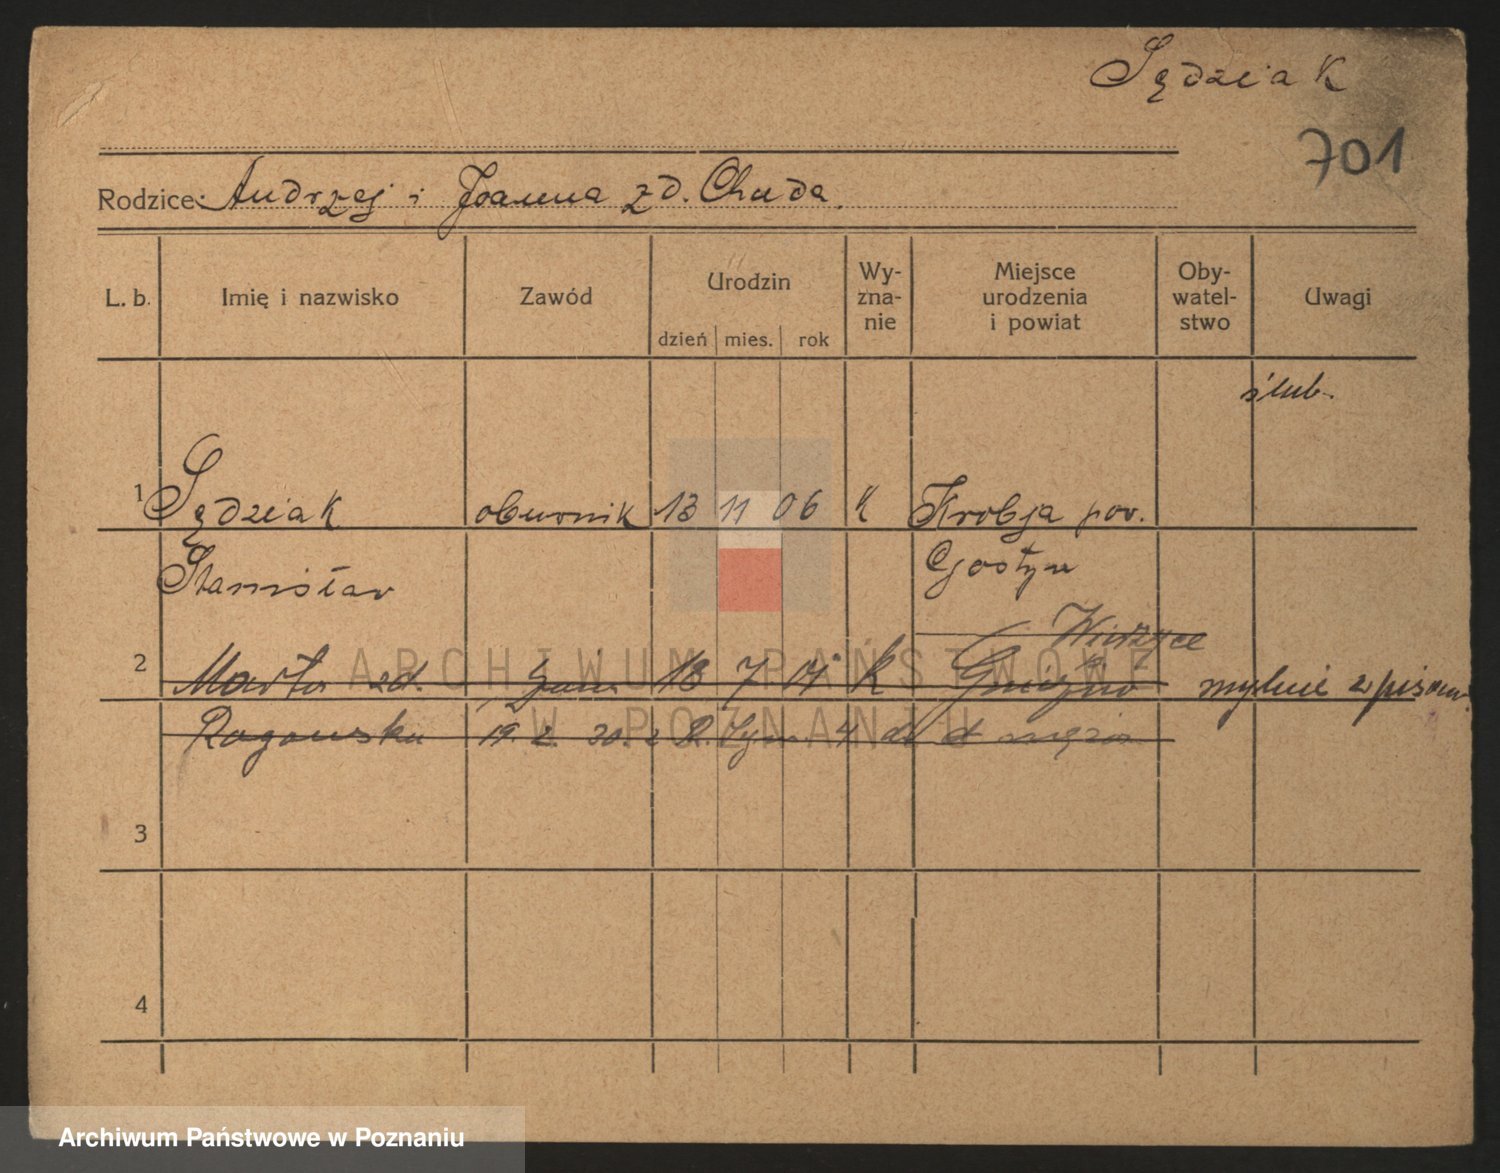 Sędziak
701
Rodzice: Andrzej i Joanna zd. Chuda.
L. b. Imię i nazwisko Zawód Urodzin dzień mies. rok Wy-zna-nie Miejsce urodzenia i powiat Oby-watel-stwo Uwagi
ślub.
1 Sędziak obuwnik 13 11 06 k Krobja pow.
Stanisław Gostyń
2 Marta zd. 18 7 k Gniezno mylnie wpisana
Rogowska 19. 2. 30. męża
3
4
ARCHIWUM PAŃSTWOWE
W POZNANIU
Archiwum Państwowe w Poznaniu